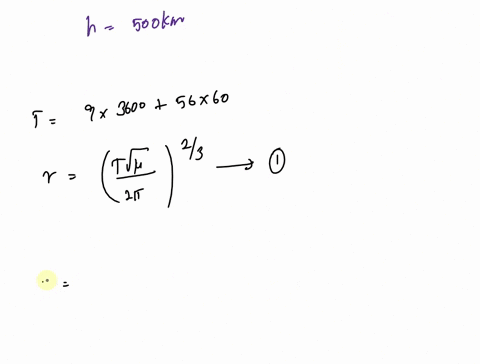 h = 500km
T = 9 x 3600 + 56 x 60
r = (T√μ / 2π)^2/3 ⟶ ①
=